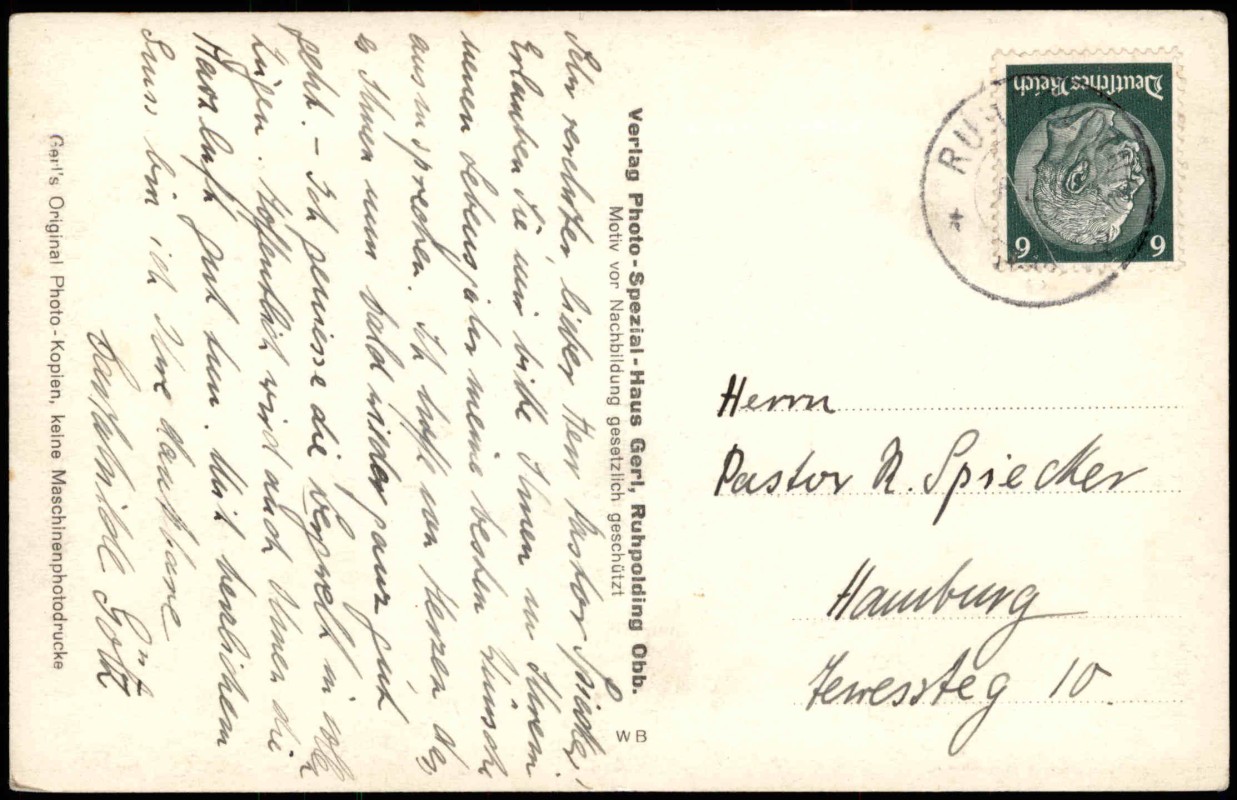 Sehr verehrter, lieber Herr Pastor Spiecker!
Erlauben Sie mir bitte Ihnen zu Ihrem
neuen Lebensjahr meine besten Wünsche
auszusprechen. Ich hoffe von Herzen, daß
es Ihnen nun bald wieder ganz gut
geht. – Ich genieße die Bergwelt in vollen
Zügen. Hoffentlich wird auch Ihnen die
Harzluft gut tun. Mit herzlichem
Gruss bin ich Ihre dankbare
Götz
Gerl's Original Photo-Kopien, keine Maschinenphotodrucke
Verlag Photo-Spezial-Haus Gerl, Ruhpolding Obb.
Motiv vor Nachbildung gesetzlich geschützt
WB
Deutsches Reich
6 6
RU
Herrn
Pastor R. Spiecker
Hamburg
Jewessteg 10